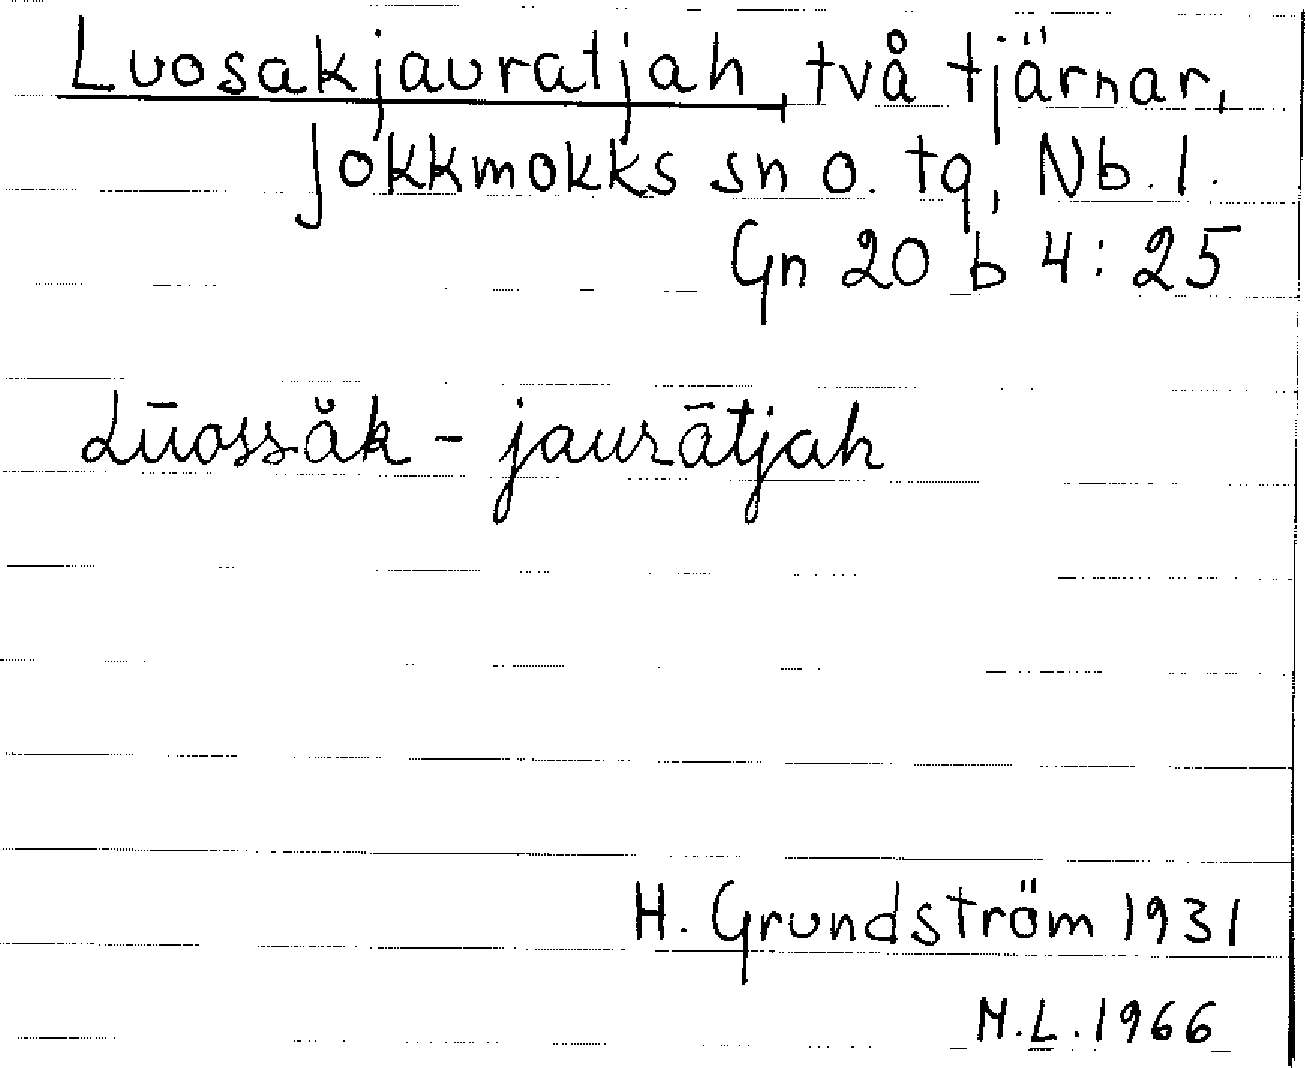 Luosakjauratjah, två tjärnar,
Jokkmokks sn o. tg, Nb. l.
Gn 20 b 4:25
Lūossăk - jaurātjah
H. Grundström 1931
M.L. 1966